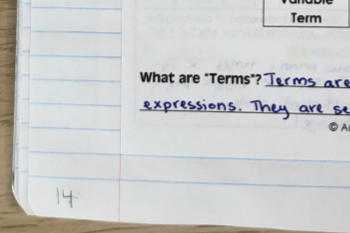 Variable
Term
What are "Terms"? Terms are
expressions. They are se
© A
14